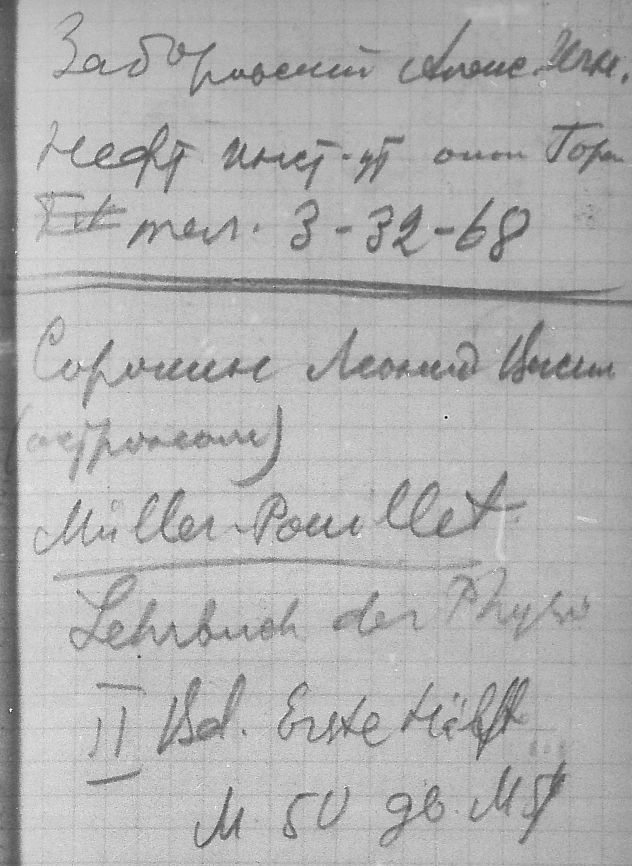 Заборовский Алекс. Игн.
Нефт инст-ут
тел. 3-32-68
Сорокин Леонид Васил
(астроном)
Müller-Pouillet
Lehrbuch der Physi
II Bd. Erste Hälft
М 50